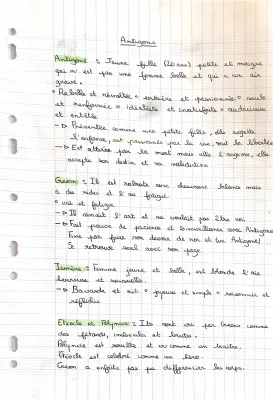 Antigone
Antigone : Jeune fille (20 ans) petite et maigre
qui n'est pas une femme belle et qui a un air
grave.
° Rebelle et révoltée ° entière et passionnée ° seule
et renfermée ° idéaliste et insatisfaite ° audacieuse
et entêtée
→ Présentée comme une petite fille, elle rejette
l'enfance, est passionnée par la vie, veut la liberté
→ Est attirée par la mort mais elle l'angoisse, elle
accepte son destin et sa malédiction
Créon : Il est robuste avec cheveux blancs mais
a des rides et l'air fatigué
° usé et fatigué
→ Il aimait l'art et ne voulait pas être roi
→ Fait preuve de patience et bienveillance avec Antigone
Finit par faire son devoir de roi et tue Antigone !
Se retrouve seul avec son page
Ismène : Femme jeune et belle, est blonde l'air
heureuse et
→ Bavarde et rit ° joyeuse et simple ° raisonnée et
réfléchie
Etéocle et Polynice : Ils sont vu par Créon comme
des fêtards, imbéciles et brutes.
Polynice est souillé et vu comme un traitre.
Etéocle est célébré comme un héro.
Créon a enfaite pas pu différencier les corps.